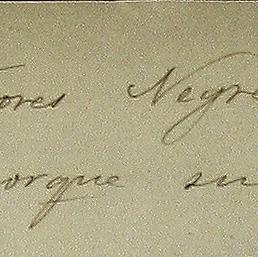 ores Negre
orque su